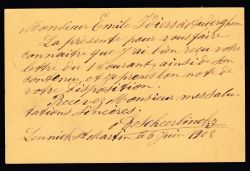 Monsieur Emile Téirs à Auderghem
La présente pour vous faire
connaître que j'ai bien reçu votre
lettre du 1 courant, ainsi de son
contenu, et je prends bon note de
votre disposition.
Recevez Monsieur mes salu-
tations sincères.
Lennick St Martin le 6 Juin 1908